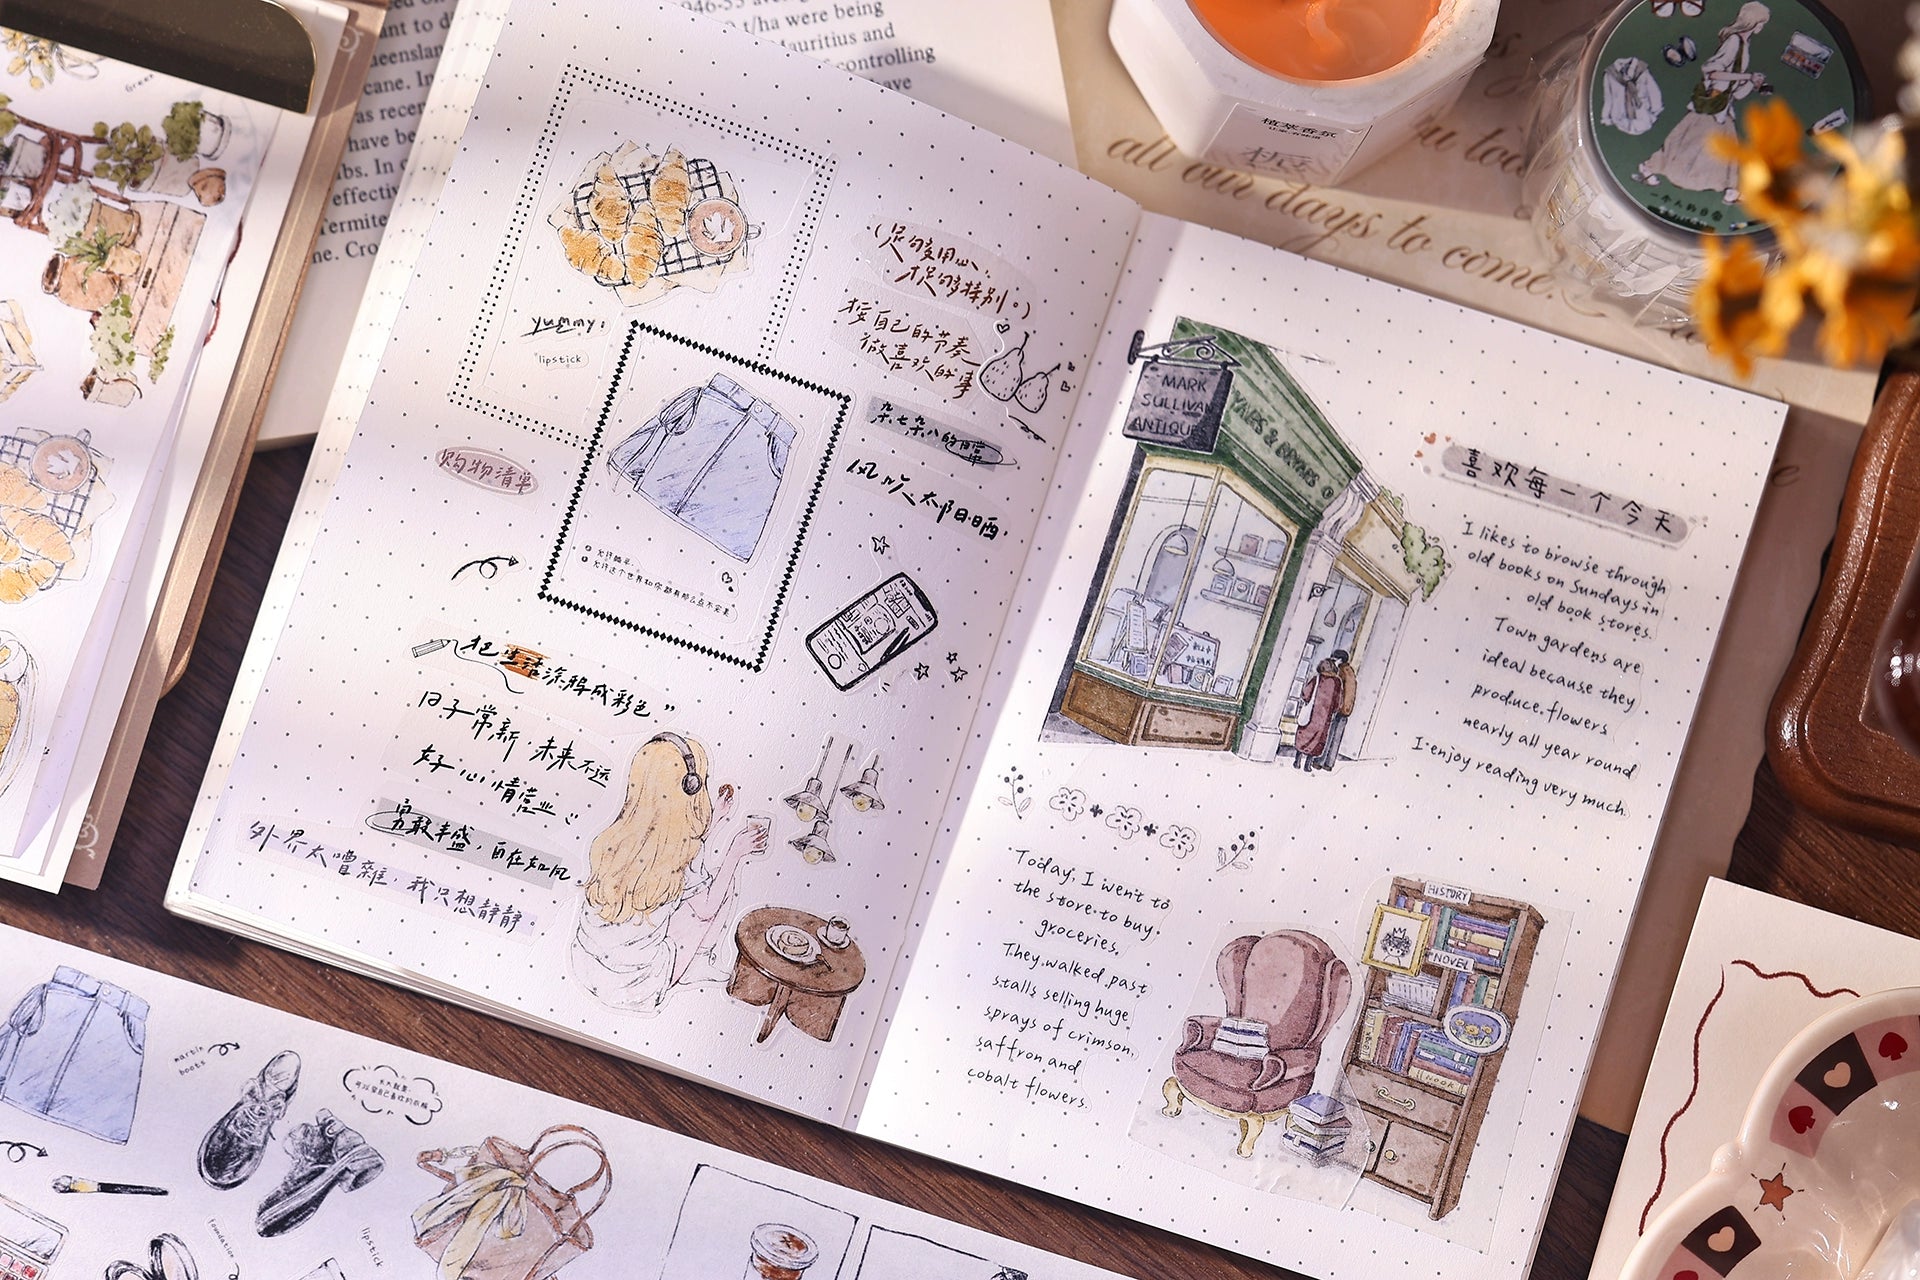 ant to d
eensland
cane. In
as recen
have be
lbs. In c
effectiv
Termites
ne. Cro
t/ha were being
Mauritius and
controlling
have
植萃香氛
all our days to come.
Green
yummy!
lipstick
购物清单
(足够用心,
才足够特别。)
按自己的节奏
做喜欢的事
杂七杂八的日常
风吹太阳晒
允许躺平
把生活涂鸦成彩色"
日子常新·未来不远
好心情营业
勇敢丰盛,自在如风
外界太嘈雜,我只想静静。
MARK
SULLIVAN
ANTIQUE
喜欢每一个今天
I likes to browse through
old books on Sundays in
old book stores.
Town gardens are
ideal because they
produce flowers
nearly all year round
I enjoy reading very much.
Today, I went to
the store to buy
groceries.
They walked past
stalls selling huge
sprays of crimson,
saffron and
cobalt flowers.
HISTORY
NOVEL
NOOK
martin
boots
foundation
lipstick